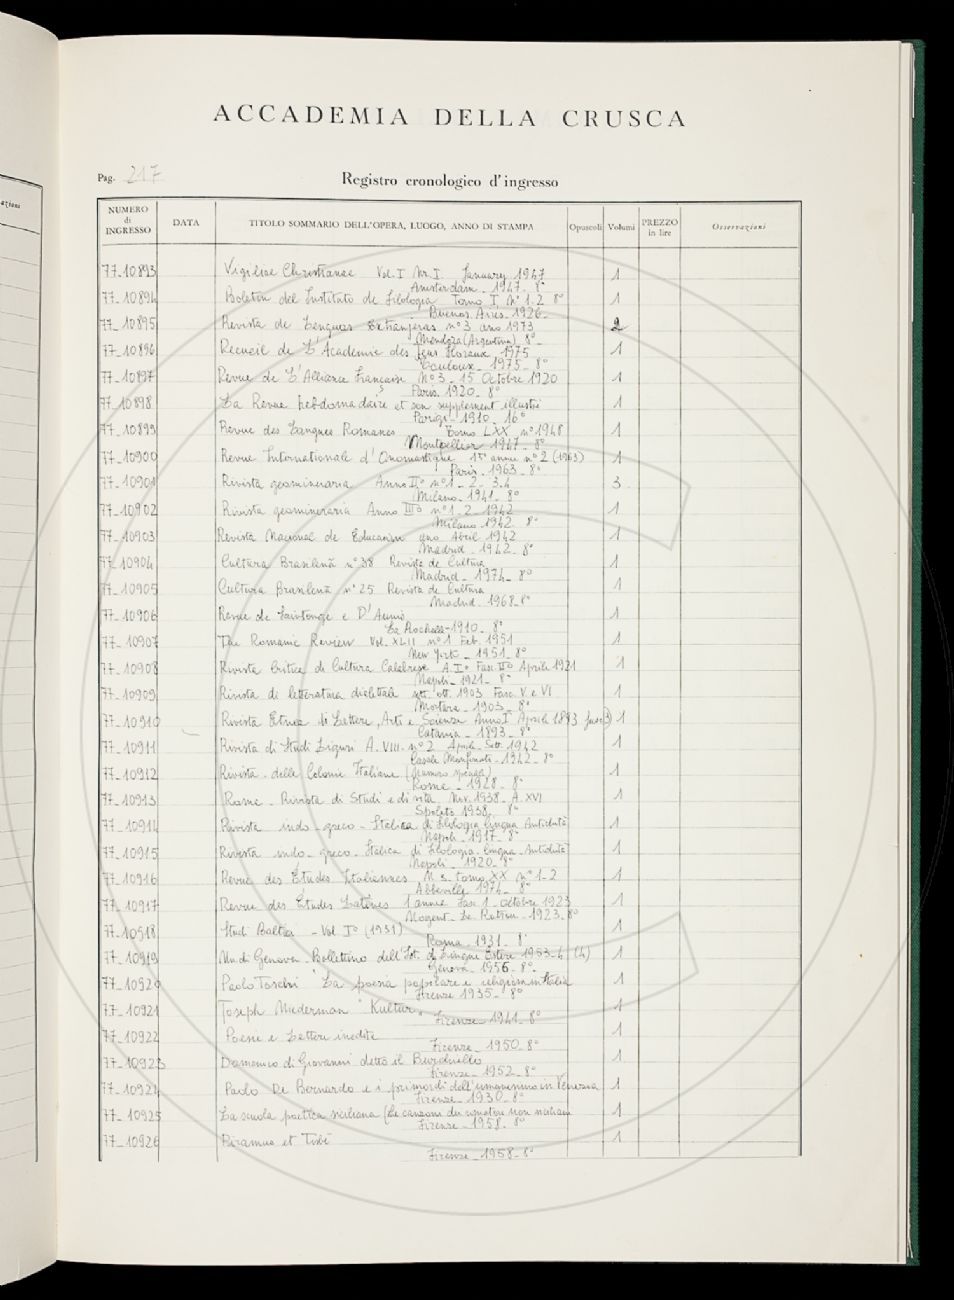 azioni
ACCADEMIA DELLA CRUSCA
Pag. 217
Registro cronologico d'ingresso
NUMERO di INGRESSO DATA TITOLO SOMMARIO DELL'OPERA, LUOGO, ANNO DI STAMPA Opuscoli Volumi PREZZO in lire Osservazioni
77-10893 Vigiliae Christianae Vol. I Nr. I. January 1947 1
Amsterdam - 1947 - 8°
77-10894 Boletin del Instituto de Filologia Tomo I n° 1-2 8° 1
Buenos Aires - 1926 -
77-10895 Revista de Lenguas Extranjeras n° 3 ano 1973 2
Mendoza (Argentina) 8° -
77-10896 Recueil de L'Academie des Jeux Floraux 1975 1
Toulouse - 1975 - 8°
77-10897 Revue de L'Alliance Française N° 3 - 15 Octobre 1920 1
Paris 1920 - 8°
77-10898 La Revue hebdomadaire et son supplement illustré 1
Parigi - 1910 - 16°
77-10899 Revue des Langues Romanes Tomo LXX n° 1948 1
Montpellier 1947 - 8°
77-10900 Revue Internationale d'Onomastique 15e annee n° 2 (1963) 1
Paris - 1963 - 8°
77-10901 Rivista geomineraria Anno II° n° 1 - 2 - 3-4 3
Milano - 1941 - 8°
77-10902 Rivista geomineraria Anno III° n° 1-2 - 1942 1
Milano 1942 - 8°
77-10903 Revista Nacional de Educacion ano Abril 1942 1
Madrid - 1942 - 8°
77-10904 Cultura Brasileña n° 38 Revista de Cultura 1
Madrid - 1974 - 8°
77-10905 Cultura Brasileña n° 25 Revista de Cultura 1
Madrid - 1968 - 8°
77-10906 Revue de Saintonge e D'Aunis 1
La Rochelle - 1910 - 8°
77-10907 The Romanic Review Vol. XLII n° 1 Feb. 1951 1
New York - 1951 - 8°
77-10908 Rivista Critica di Cultura Calabrese A. I° Fasc. II° Aprile 1921 1
Napoli - 1921 - 8°
77-10909 Rivista di letteratura dialettale sett. ott. 1903 Fasc. V e VI 1
Mortara - 1903 - 8°
77-10910 Rivista Etnea di Lettere, Arti e Scienze Anno I° Aprile 1893 fasc 3) 1
Catania - 1893 - 8°
77-10911 Rivista di Studi Liguri A. VIII - n° 2 Aprile - Sett. 1942 1
Casale Monferrato - 1942 - 8°
77-10912 Rivista delle Colonie Italiane (Numero speciale) 1
Roma - 1928 - 8°
77-10913 Rome - Rivista di Studi e di vita Nov. 1938 - A. XVI 1
Spoleto 1938 - 8°
77-10914 Rivista indo-greco-Italica di filologia lingua Antichità 1
Napoli - 1917 - 8°
77-10915 Rivista indo-greco-Italica di filologia - lingua - Antichità 1
Napoli - 1920 - 8°
77-10916 Revue des Études Italiennes N. s. tomo XX n° 1-2 1
Abbeville 1974 - 8°
77-10917 Revue des Études Latines 1 annee Fasc 1 - Octobre 1923 1
Nogent-Le-Rotrou - 1923 - 8°
77-10918 Studi Baltici - Vol. I° (1931) 1
Roma - 1931 - 8°
77-10919 Un. di Genova - Bollettino dell'Ist. di Lingue Estere 1953-4 (4) 1
Genova - 1956 - 8° -
77-10920 Paolo Toschi "La poesia popolare e religiosa in Italia 1
Firenze 1935 - 8°
77-10921 Joseph Niederman "Kultur" 1
Firenze - 1941 - 8°
77-10922 Poesie e Lettere inedite 1
Firenze - 1950 - 8°
77-10923 Domenico di Giovanni detto il Burchiello 1
Firenze - 1952 - 8°
77-10924 Paolo De Bernardo e i primordi dell'umanesimo in Venezia 1
Firenze - 1930 - 8°
77-10925 La scuola poetica siciliana (Le canzoni dei rimatori non siciliani 1
Firenze - 1958 - 8°
77-10926 Piramus et Tisbé 1
Firenze - 1958 - 8°